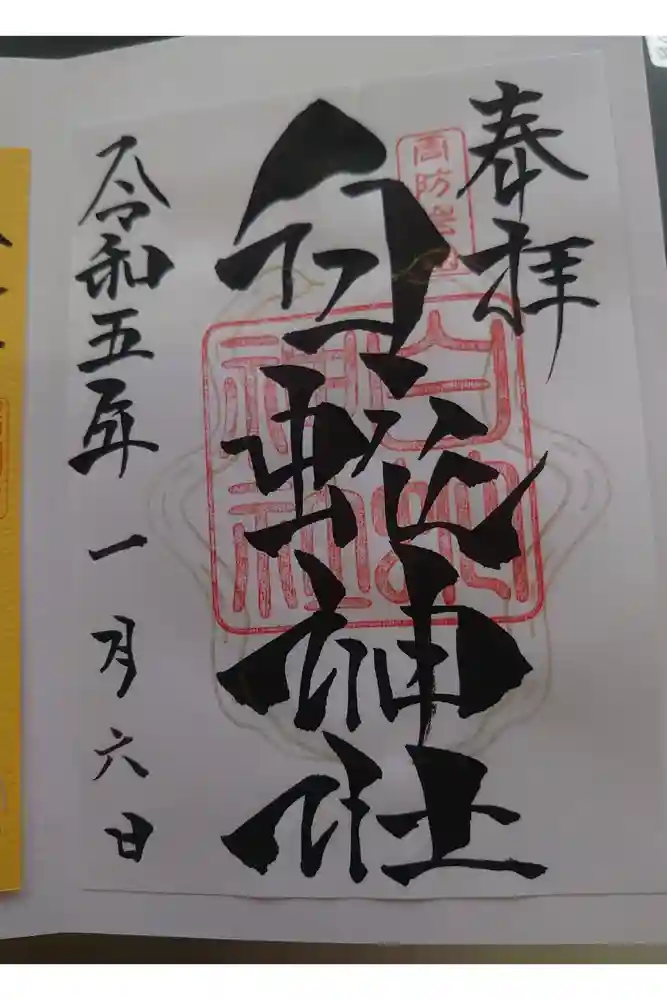 奉拝
周防岩国
白蛇神社
白蛇
神社
令和五年一月六日